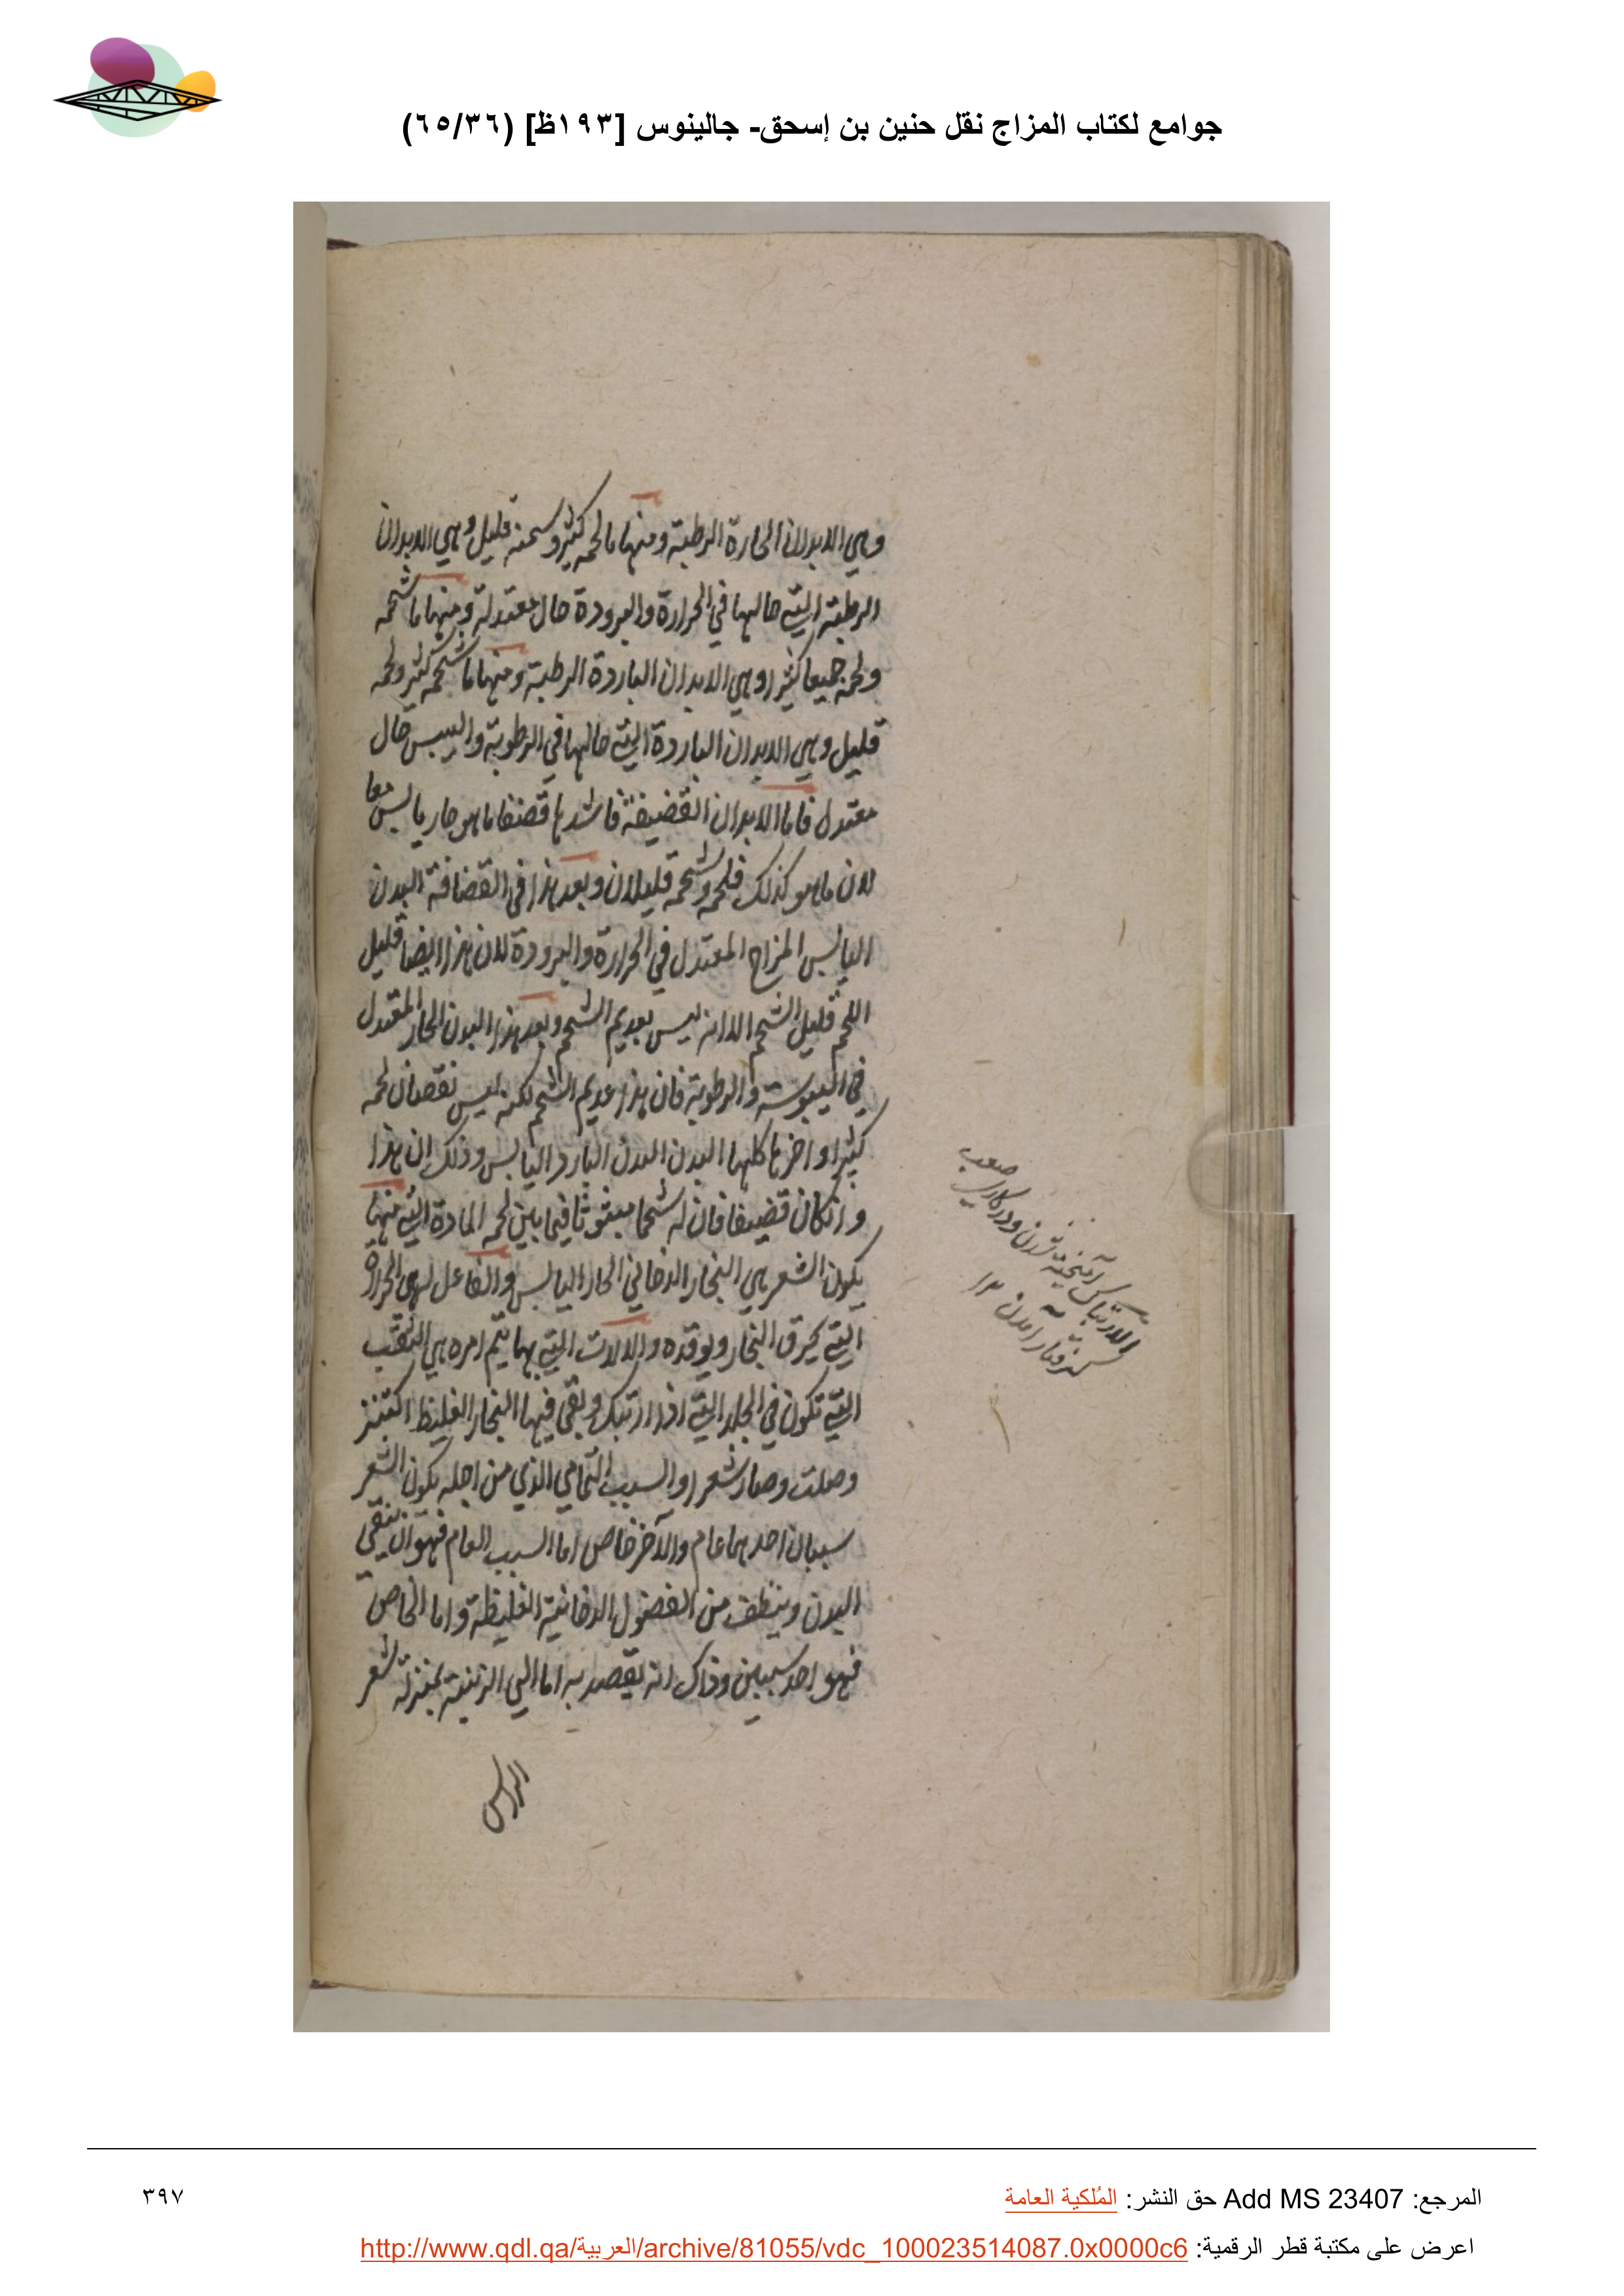 جوامع لكتاب المزاج نقل حنين بن إسحق- جالينوس [١٩٣ظ] (٦٥/٣٦)
وهي الابدان الحارة الرطبة ومنها ما لحمه كثير وسمنه قليل وهي الابدان
الرطبة التي حالها في الحرارة والبرودة حال معتدلة ومنها ما شحمه
ولحمه جميعا كثيرا وهي الابدان الباردة الرطبة ومنها ما شحمه كثير ولحمه
قليل وهي الابدان الباردة التي حالها في الرطوبة واليبس حال
معتدل فاما الابدان القضيفة فاشدها قضفا ما هو حار يابس معا
لان ما هو كذلك فلحمه وشحمه قليلان وبعد هذا في القضافة البدن
اليابس المزاج المعتدل في الحرارة والبرودة لان هذا ايضا قليل
اللحم قليل الشحم الا انه ليس بعديم الشحم وبعد هذا البدن الحار المعتدل
في اليبوسة والرطوبة فان هذا عديم الشحم لكنه ليس نقصان لحمه
كثيرا واخرها كلها البدن البدن البارد اليابس وذلك ان هذا
وان كان قضيفا فان له شحما مبثوثا فيما بين لحمه المادة التي منها
يكون الشعر هي البخار الدخاني الحار اليابس والفاعل لهي الحرارة
التي تحرق البخار ويوقده والالات التي بها يتم امره هي الثقب
التي تكون في الجلد التي اذا ارتبك وبقي فيها البخار الغليظ اكتنز
وصلت وصار شعرا والسبب التمامي الذي من اجله يكون الشعر
سببان احدهما عام والآخر خاص اما السبب العام فهو ان ينقي
البدن وينظف من الفضول الدخانية الغليظة واما الخاص
فهو احد سببين وذاك انه يقصد به اما الى الزينة بمنزلة شعر
الراس
الارتباك آميخته شدن ودر كار صعب
گرفتار آمدن ١٢
المرجع: Add MS 23407 حق النشر: المُلكية العامة
٣٩٧
اعرض على مكتبة قطر الرقمية: http://www.qdl.qa/العربية/archive/81055/vdc_100023514087.0x0000c6